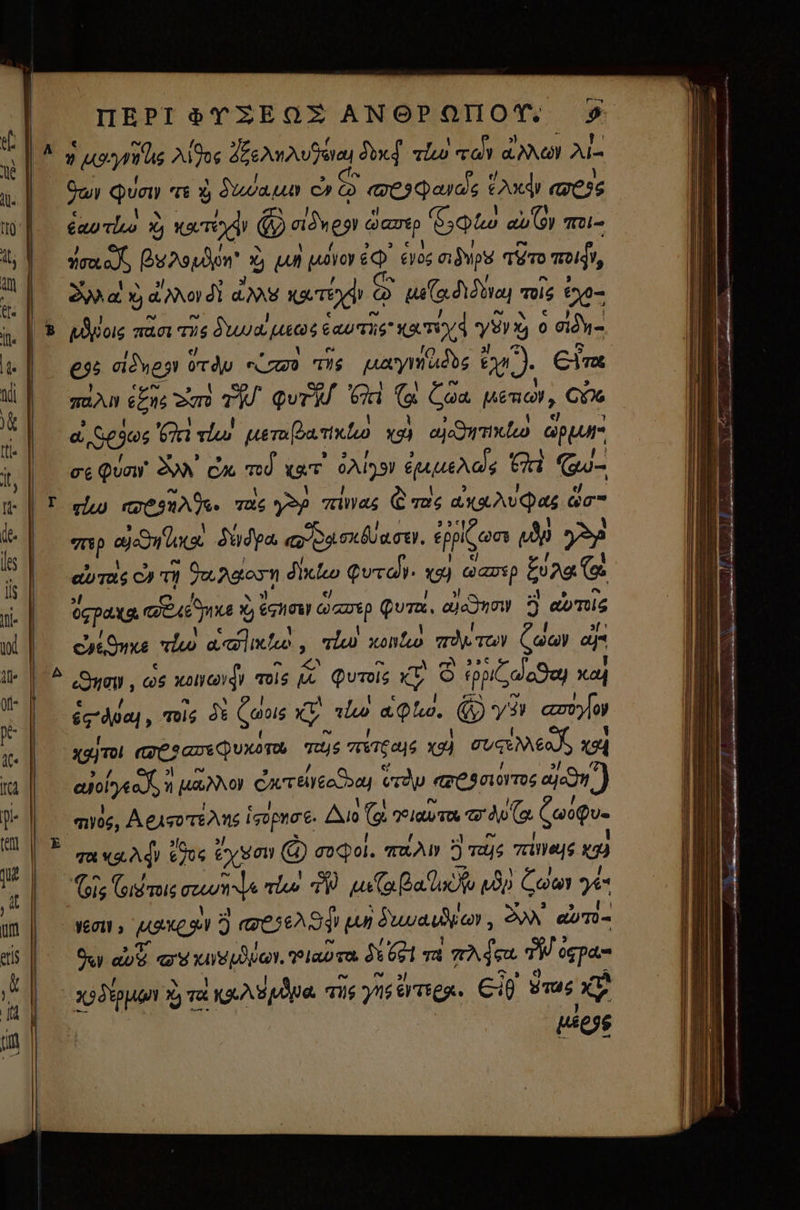 ΠΕΡΙ ΦΥΣΕΩΣ ΑΝΘΡΩΠΟΥ. 9
A ἡ μαγνῆτις λίθος ἐξεληλυθέναι δοκεῖ τὴν τῶν ἄλλων λί-
θων φύσιν τε καὶ δύναμιν ἐν τῷ προφανῶς ἕλκειν πρὸς
ἑαυτὴν καὶ κατέχειν τὸν σίδηρον ὥσπερ τροφὴν αὐτὸν ποι-
ήσασθαι βουλομένη· καὶ μὴ μόνον ἐφ' ἑνὸς σιδήρου τοῦτο ποιεῖν,
ἀλλὰ καὶ ἄλλον δι' ἄλλου κατέχειν τῷ μεταδιδόναι τοῖς ἐχο-
B μένοις πᾶσι τῆς δυνάμεως ἑαυτῆς· κατέχει γοῦν καὶ ὁ σίδη-
ρος σίδηρον ὅταν ὑπὸ τῆς μαγνήτιδος ἔχηται. Εἶτα
πάλιν ἑξῆς ἀπὸ τῶν φυτῶν ἐπὶ τὰ ζῶα μετιὼν, οὐκ
ἀθρόως ἐπὶ τὴν μεταβατικὴν καὶ αἰσθητικὴν ὥρμη-
σε φύσιν ἀλλ' ἐκ τοῦ κατ' ὀλίγον ἐμμελῶς ἐπὶ ταύ-
Γ την προσῆλθε. τὰς γὰρ πίννας καὶ τὰς ἀκαλύφας ὥσ-
περ αἰσθητικὰ δένδρα κατεσκεύασεν. ἐρρίζωσε μὲν γὰρ
αὐτὰς ἐν τῇ θαλάσσῃ δίκην φυτῶν. καὶ ὥσπερ ξύλα τὰ
ὄστρακα περιέθηκε καὶ ἔστησεν ὥσπερ φυτά. αἴσθησιν δὲ αὐταῖς
ἐνέθηκε τὴν ἁπτικὴν, τὴν κοινὴν πάντων ζώων αἴ-
Δ σθησιν, ὡς κοινωνεῖν τοῖς μὲν φυτοῖς κατὰ τὸ ἐρριζῶσθαι καὶ
ἑστάναι, τοῖς δὲ ζώοις κατὰ τὴν ἁφήν. τὸν γοῦν σπόγγον
καίτοι προσπεφυκότα ταῖς πέτραις καὶ συστέλλεσθαι καὶ
ἀνοίγεσθαι ἢ μᾶλλον ἐκτείνεσθαι ὅταν προσιόντος αἴσθηται
τινός, Ἀριστοτέλης ἱστόρησε. Διὸ τὰ τοιαῦτα πάντα ζωόφυ-
E τα καλεῖν ἔθος ἔχουσιν οἱ σοφοί. πάλιν δὲ ταῖς πίνναις καὶ
τοῖς τοιούτοις συνῆψε τὴν τῶν μεταβατικῶν μὲν ζώων γέ-
νεσιν, μακρὰν δὲ προσελθεῖν μὴ δυναμένων, ἀλλ' αὐτό-
θεν αὐτοῦ που κινουμένων. τοιαῦτα δέ ἐστι τὰ πλεῖστα τῶν ὀστρα-
κοδέρμων καὶ τὰ καλούμενα τῆς γῆς ἔντερα. Εἶθ' οὕτως κατὰ
μέρος